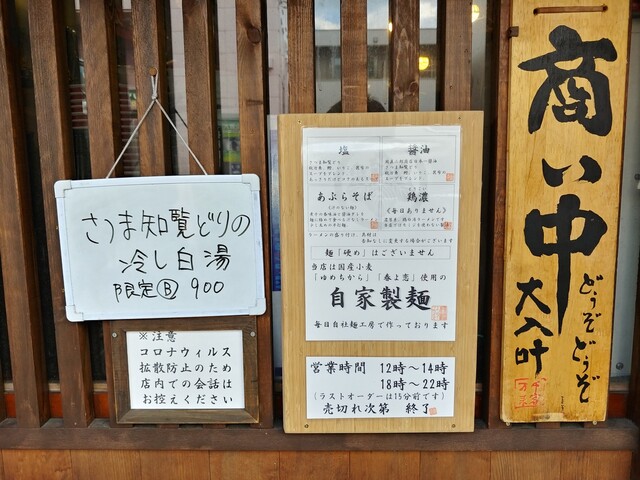 さつま知覧どりの
冷し白湯
限定Ⓑ 900
※注意
コロナウィルス
拡散防止のため
店内での会話は
お控えください
塩
醤油
あぶらそば
鶏濃
《毎日ありません》
麺「硬め」はございません
当店は国産小麦
「ゆめちから」「春よ恋」使用の
自家製麺
毎日自社麺工房で作っております
営業時間 12時〜14時
18時〜22時
(ラストオーダーは15分前です)
売切れ次第 終了
商い中
どうぞどうぞ
大入叶